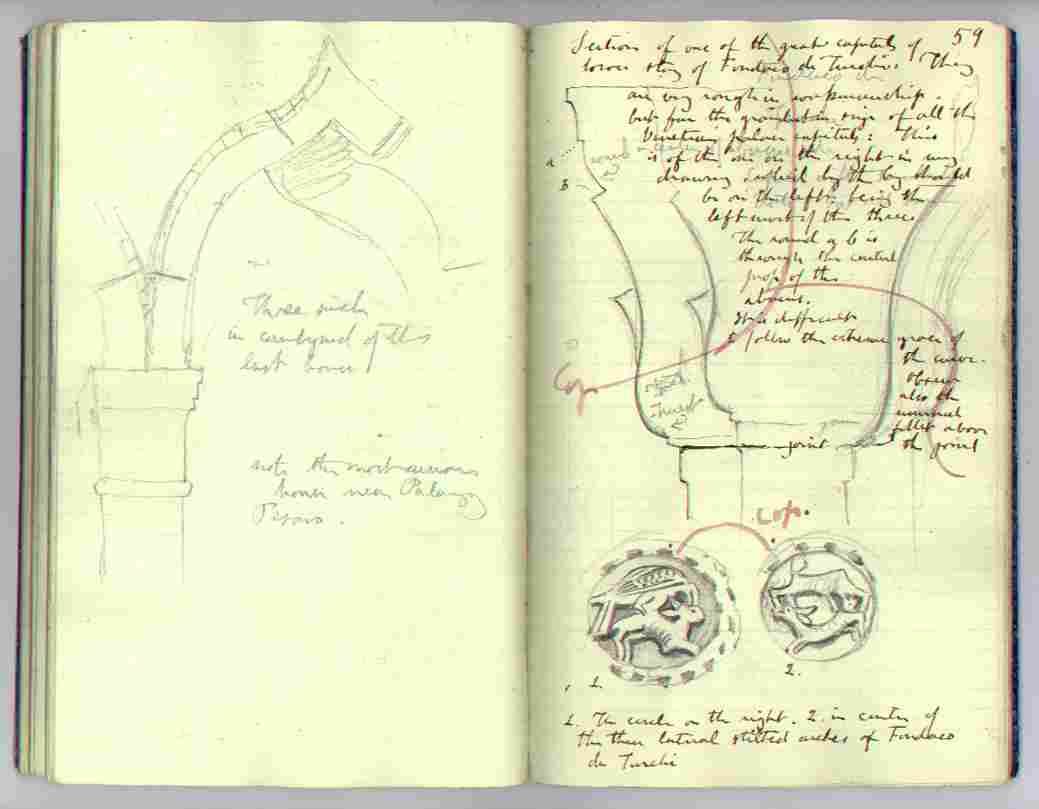 Three such
in courtyard of this
last house
note the most curious
house near Palazzo
Pisano.
59
Section of one of the great capitals of
lower story of Fondaco de Turchi. They
are very rough in workmanship.
but for the grandest in sign of all the
Venetian palace capitals: this
is of the one on the right in my
drawing by the by should
be on the left: being the
left most of the three
The round a b is
through the central
prop of this
abacus.
It is difficult
to follow the extreme grace of
the curve.
Observe
also the
unusual
fillet above
the joint
a
b
Cop
joint
Cop.
1.
2.
1. The circle on the right. 2. in centre of
the three lateral stilted arches of Fondaco
de Turchi